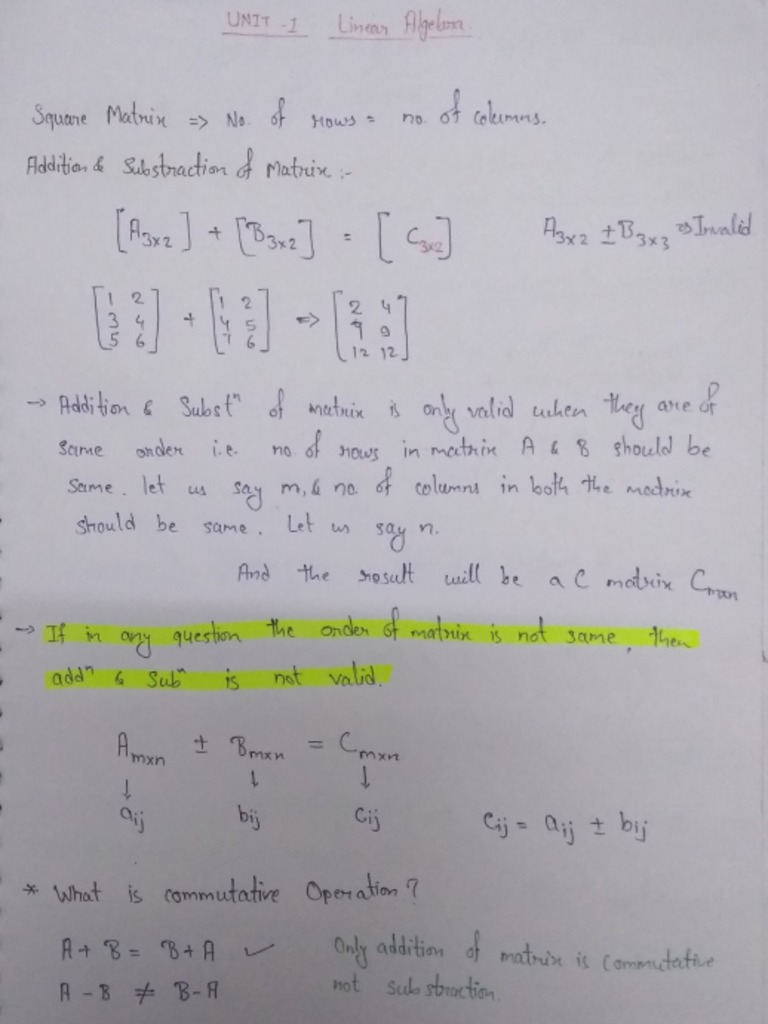 UNIT - 1 Linear Algebra.
Square Matrix => No. of rows = no. of columns.
Addition & Substraction of Matrix :-
[A3x2] + [B3x2] = [C3x2] A3x2 ± B3x3 => Invalid
[1 2 + [1 2 => [2 4
3 4 4 5 7 9
5 6] 7 6] 12 12]
→ Addition & Substⁿ of matrix is only valid when they are of
same order i.e. no of rows in matrix A & B should be
same. let us say m, & no. of columns in both the matrix
should be same. Let us say n.
And the result will be a C matrix Cmxn
→ If in any question the order of matrix is not same, then
addⁿ & subⁿ is not valid.
Amxn ± Bmxn = Cmxn
↓ ↓ ↓
aij bij cij cij = aij ± bij
* What is commutative Operation?
A + B = B + A ✓ Only addition of matrix is commutative
A - B ≠ B - A not substraction.